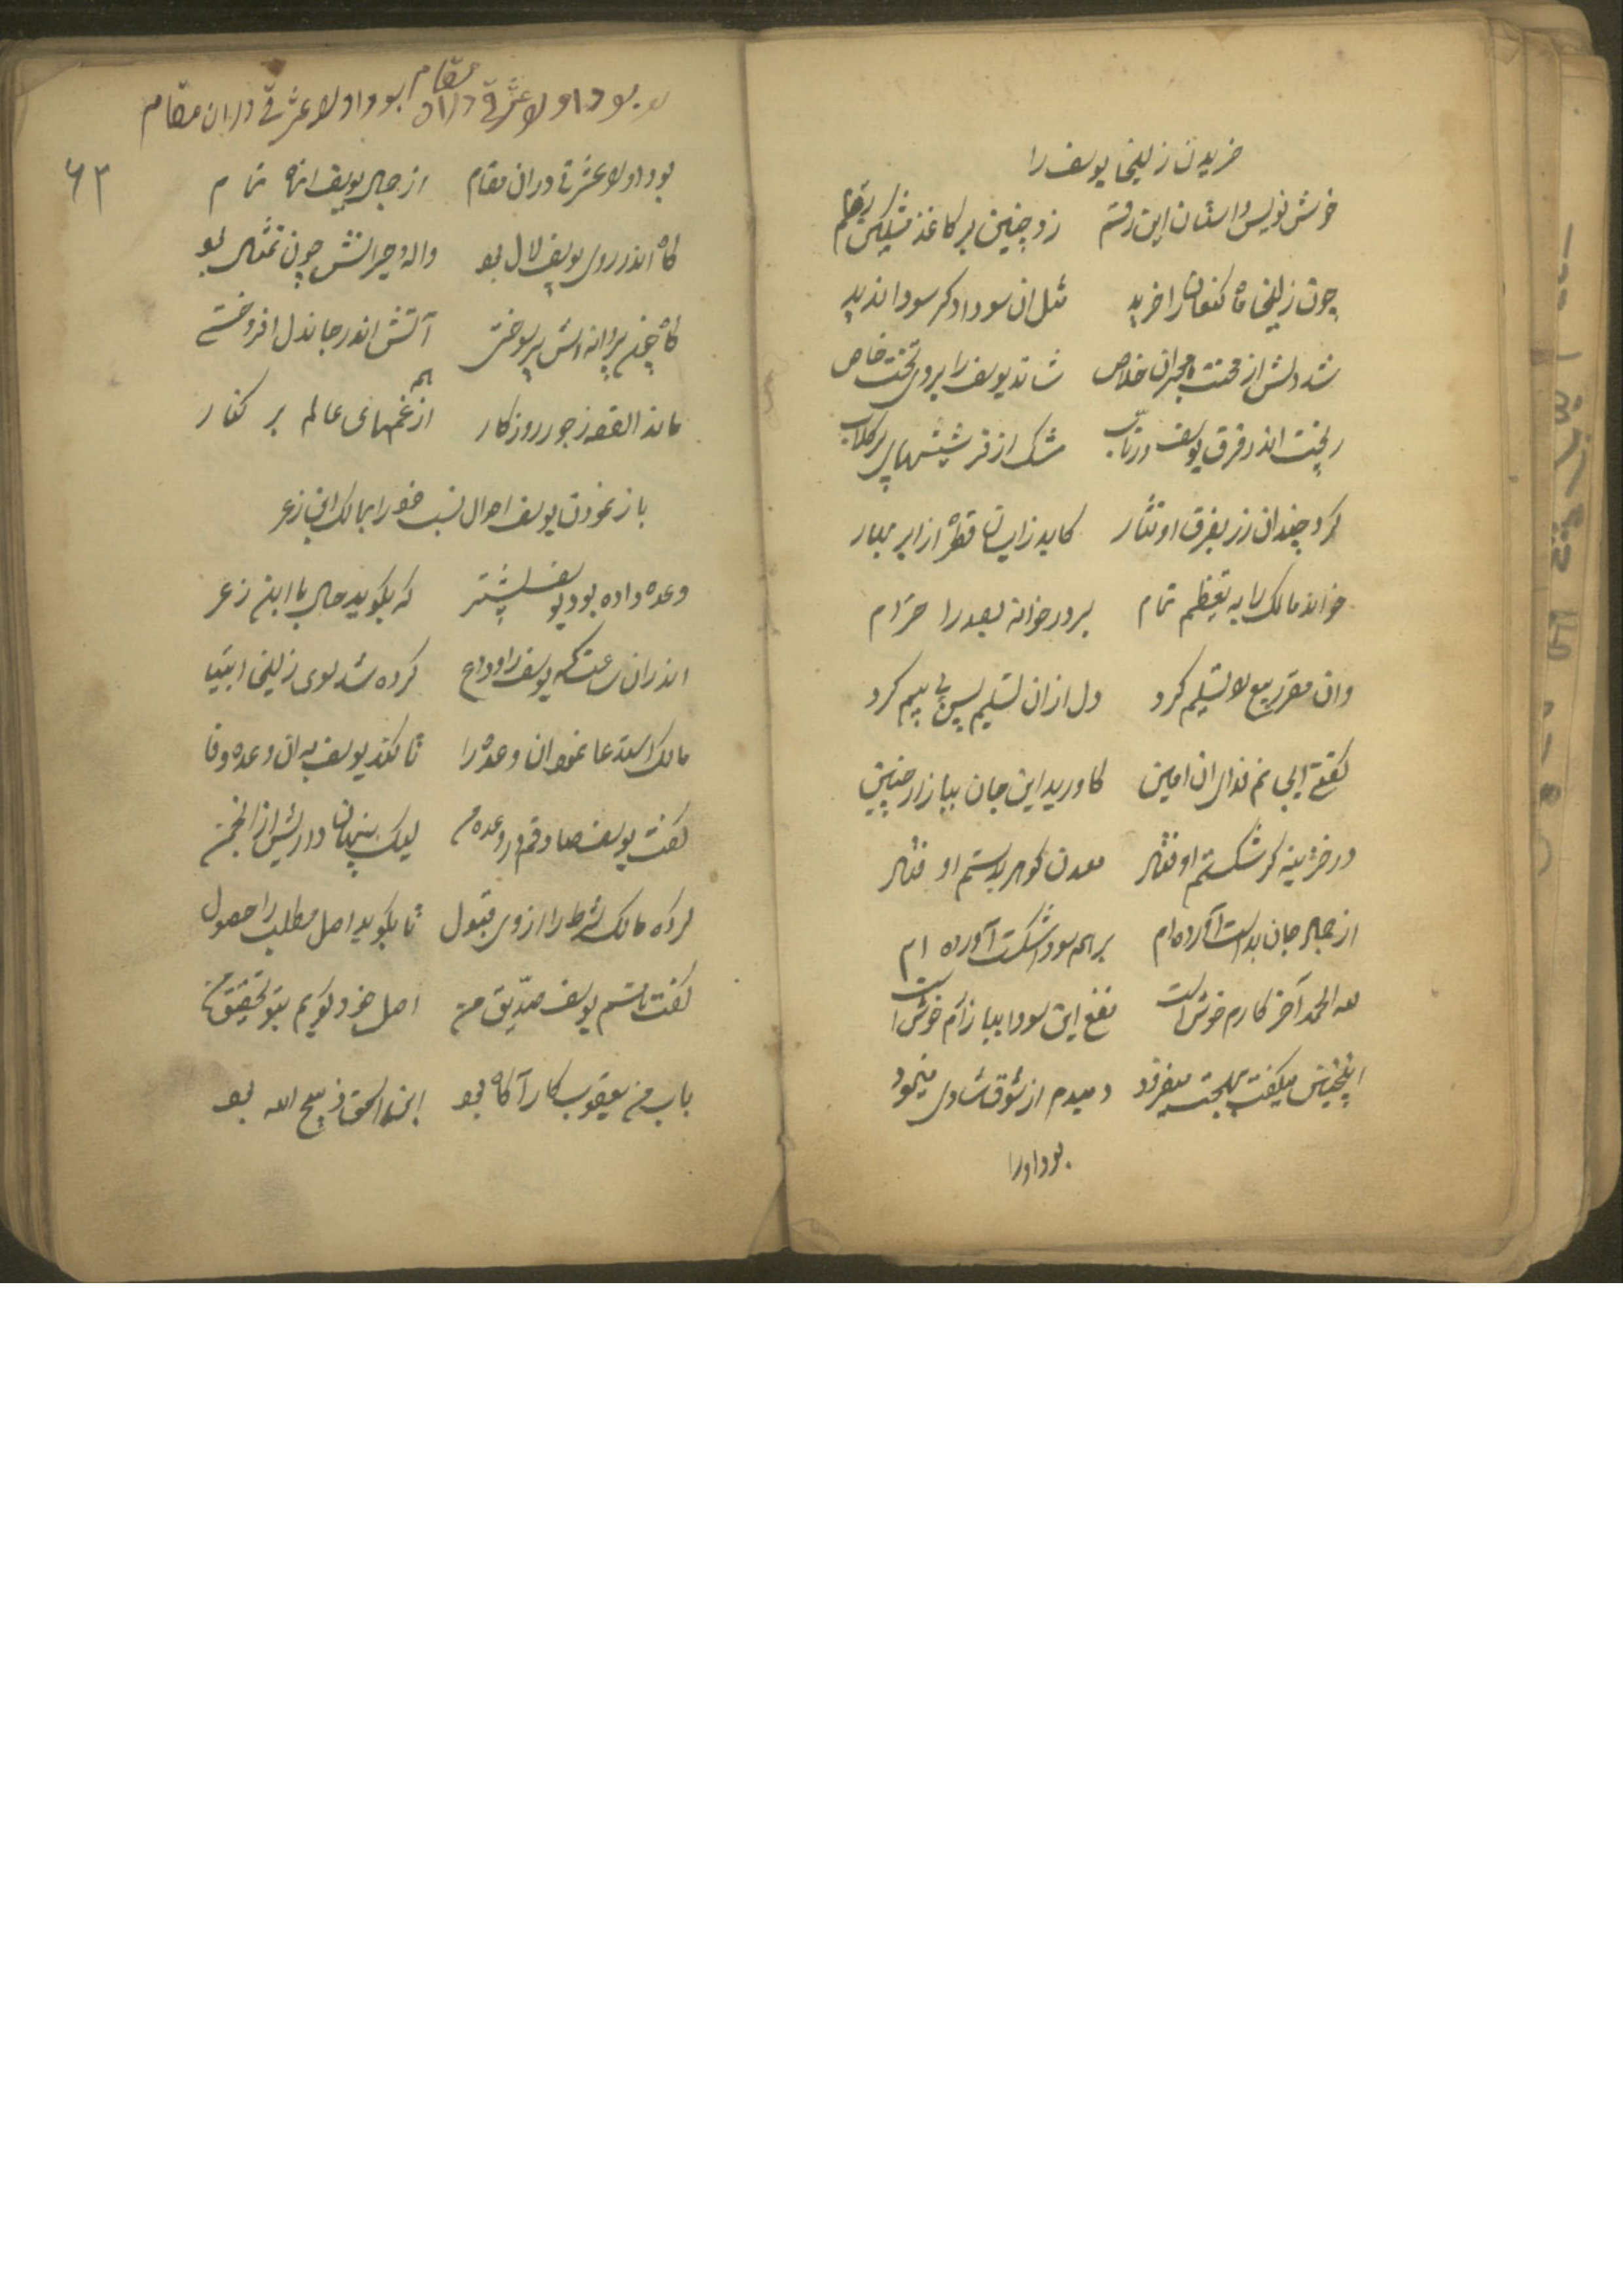 خریدن زلیخا یوسف را
خوش نویس داستان این رقم زد چنین بر کاغذ مشکین رقم
چون زلیخا ماه کنعان را خرید مثل ان سودا دکر سودا ندید
شد دلش از محنت هجران خلاص شاند یوسف را بروی تخت خاص
ریخت اندر فرق یوسف مشک از شیشهای پر کلاب
کرد چندان زر بفرق او نثار کاید از قطره از ابر بهار
خواند مالک را به تعظیم تمام
وان مقرر بیع لا تسلیم کرد دل از ان تسلیم پس بی بیم کرد
ان امین کاورید این جان ببازار چنین
در خزینه کر شکستم او فتاد معدن کوهر بدستم او فتاد
از جان بدست آورده ام بر همه سودا شکست آورده ام
لله الحمد آخر کارم خوش است نفع این سودا ببازارم خوش است
اینچنین میکفت میفزود دمبدم از شوق شادی مینمود
بود او را
بود او لا عشرتی دران مقام بود او لا عشرتی دران مقام
۶۳
بود او لا عشرتی دران مقام از یوسف تمام
کاه اندر روی یوسف لال بود واله و حیرانش چون تمثال بود
کاه چون پروانه اش پر سوختی آتش اندر جان و دل افروختی
ماند القصه ز جور روزکار از غمهای عالم بر کنار
باز نمودن یوسف احوال نسب خود را بمالک ابن زعر
وعده داده بود یوسف پیشتر که بکوید حال با ابن زعر
اندران ساعت که یوسف را وداع کرده شد سوی زلیخا
مالک استدعا نمود ان وعده را تا کند یوسف به ان وعده وفا
کفت یوسف صادقم در وعده من لیک پنهان داریش از انجمن
کرد مالک شرط را از وی قبول تا بکوید اصل مطلب را حصول
کفت یوسف صدیق من اصل خود کویم بتو تحقیق من
باب من یعقوب کار آکاه بود اسحق ذبیح الله بود